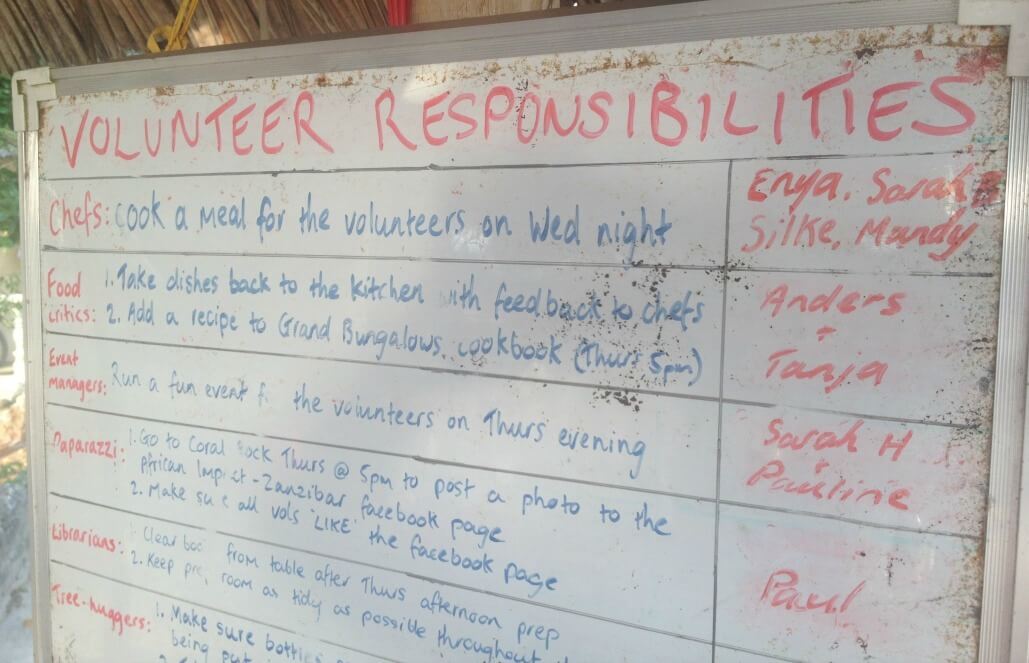 VOLUNTEER RESPONSIBILITIES
Chefs: Cook a meal for the volunteers on Wed night
Enya, Sarah
Silke, Mandy
Food critics: 1. Take dishes back to the kitchen with feedback to chefs
2. Add a recipe to Grand Bungalows cookbook (Thurs 5pm)
Anders
+
Tanja
Event managers: Run a fun event f the volunteers on Thurs evening
Sarah H
+
Pauline
Paparazzi: 1. Go to Coral ock Thurs @ 5pm to post a photo to the
African Imp ct - Zanzibar facebook page
2. Make su e all vols 'LIKE' the facebook page
Paul
Librarians: Clear boo from table after Thurs afternoon prep
2. Keep pre room as tidy as possible throughout
Tree-huggers: 1. Make sure bott
being put